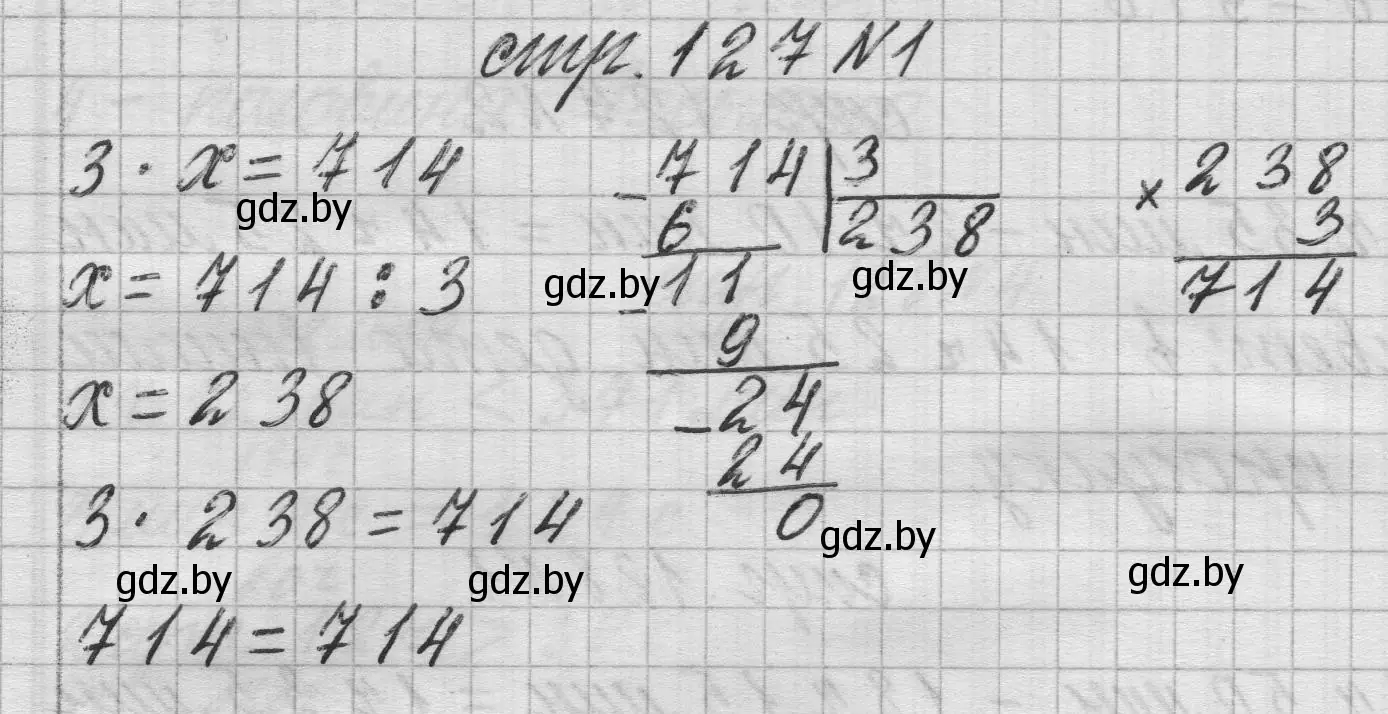 стр. 127 N1
3 · x = 714
x = 714 : 3
x = 238
3 · 238 = 714
714 = 714
- 714 | 3
6 | 238
- 11
9
- 24
24
0
× 238
3
714
gdz.by
gdz.by
gdz.by
gdz.by
gdz.by
gdz.by
gdz.by